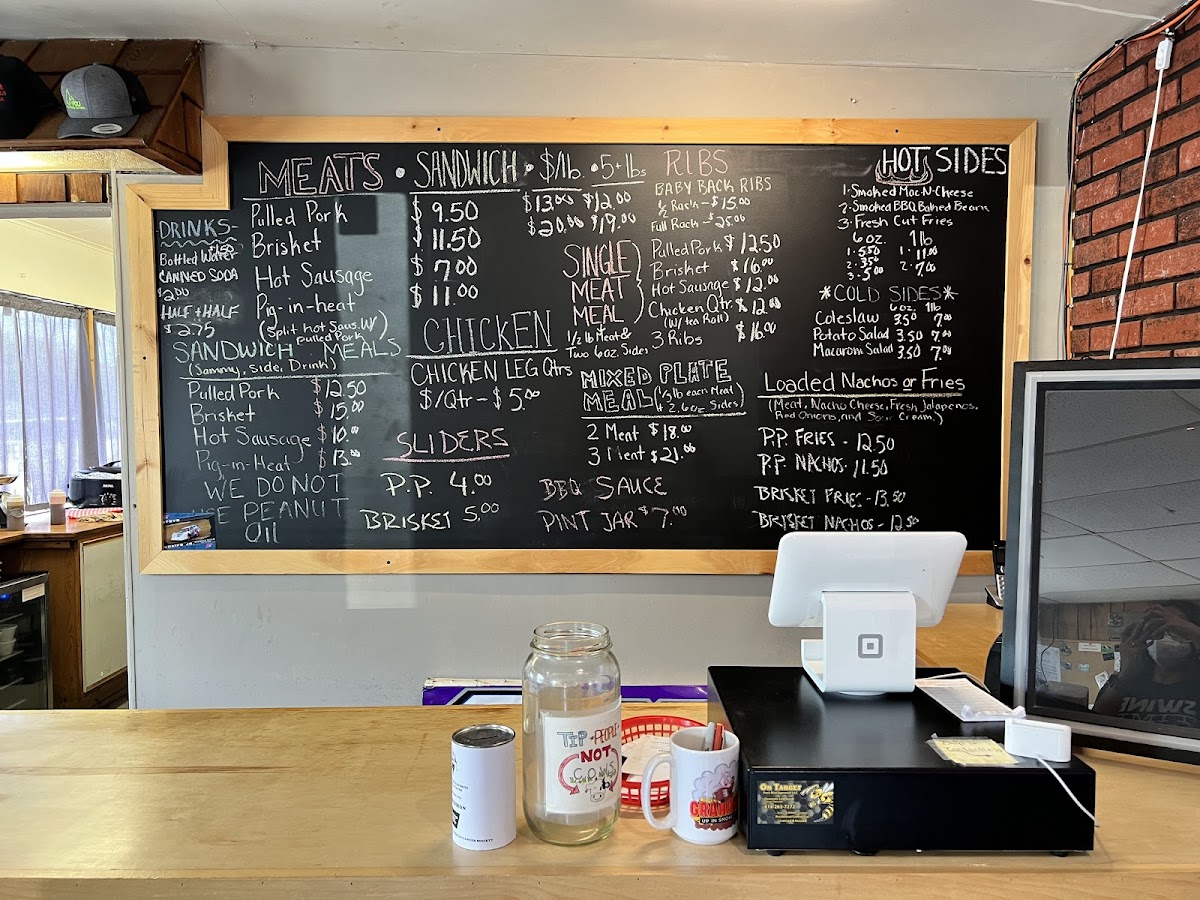 MEATS • SANDWICH • $/lb • 5+lbs
Pulled Pork $ 9.50 $13.00 $12.00
Brisket $ 11.50 $20.00 $19.00
Hot Sausage $ 7.00
Pig-in-heat $ 11.00
(Split hot Saus. W/
pulled Pork)
DRINKS-
Bottled Water $1.50
CANNED SODA
$2.00
HALF+HALF
$2.75
SANDWICH MEALS
(Sammy, side, Drink)
Pulled Pork $12.50
Brisket $15.00
Hot Sausage $10.00
Pig-in-Heat $13.00
WE DO NOT
USE PEANUT
Oil
CHICKEN
CHICKEN LEG Qtrs
$/Qtr - $5.00
SLIDERS
P.P. 4.00
BRISKET 5.00
RIBS
BABY BACK RIBS
1/2 Rack - $15.00
Full Rack - $25.00
SINGLE
MEAT
MEAL
1/2 lb Meat &
Two 6oz. Sides
Pulled Pork $12.50
Brisket $16.00
Hot Sausage $12.00
Chicken Qtr. $12.00
(W/tea Roll)
3 Ribs $16.00
MIXED PLATE
MEAL (1/3 lb each Meat
+ 2.6oz Sides)
2 Meat $18.00
3 Meat $21.00
BBQ SAUCE
PINT JAR $7.00
HOT SIDES
1. Smoked Mac-N-Cheese
2. Smoked BBQ Baked Beans
3. Fresh Cut Fries
6 oz. 1lb
1. 5.50 1. 11.00
2. 3.50 2. 7.00
3. 5.00
*COLD SIDES*
6oz. 1lb
Coleslaw 3.50 7.00
Potato Salad 3.50 7.00
Macaroni Salad 3.50 7.00
Loaded Nachos or Fries
(Meat, Nacho Cheese, Fresh Jalapenos,
Red Onions, and Sour Cream)
P.P. FRIES - 12.50
P.P. NACHOS - 11.50
BRISKET FRIES - 13.50
BRISKET NACHOS - 12.50
TIP PEOPLE
NOT
COWS
UP IN SMOKE
ON TARGET
SWINE